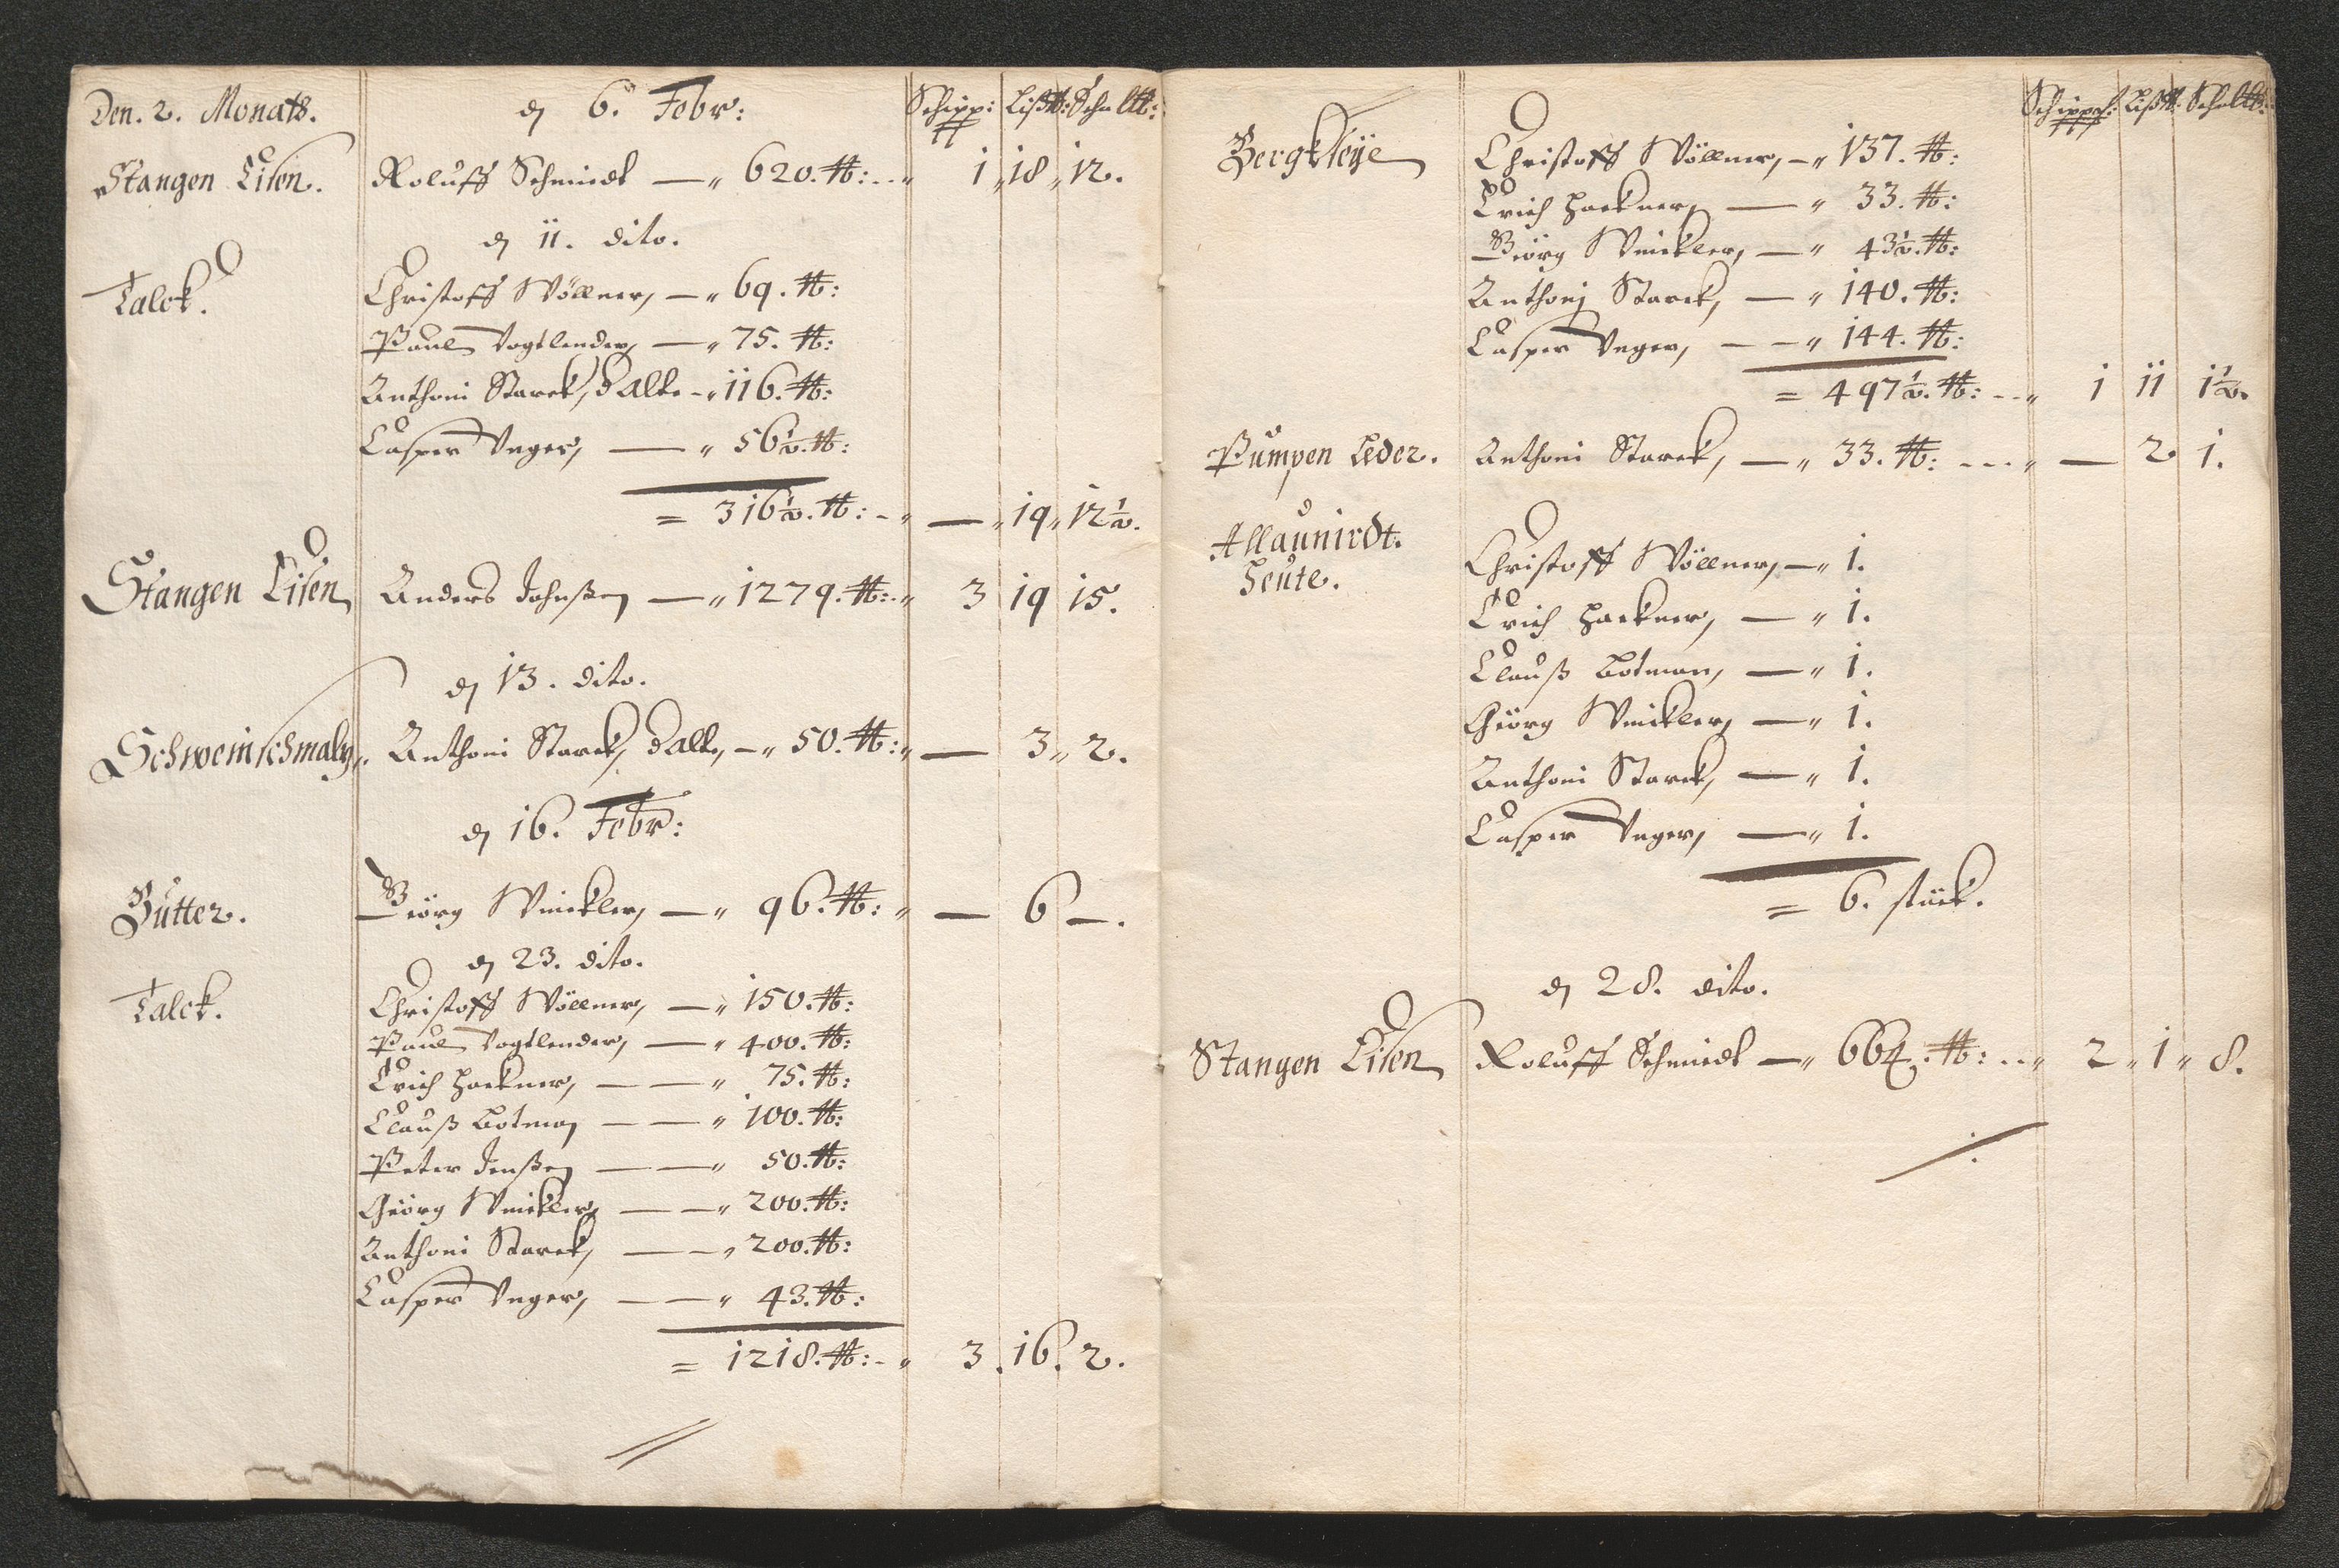 Den. 2. Monats. dn 6. Febr: Schipp: Liß℔: Schal℔:
Stangen Eisen. Roluff Schmidt — " 620. ℔: " 1 " 18 " 12.
dn 11. dito.
Talck. Christoff Wöllner, — " 69. ℔:
Paul Vogtlender, — " 75. ℔:
Anthoni Starck, d Alte — " 116. ℔:
Casper Unger, — " 56½. ℔:
= 316½. ℔: - " — " 19 " 12½.
Stangen Eisen Anders Johnßen — " 1279. ℔: " 3 19 15.
dn 13. dito.
Schweinschmaltz. Anthoni Starck, d Alte, — " 50. ℔: " — 3 " 2.
dn 16. Febr:
Butter. Giörg Winckler, — " 96. ℔: " — 6 —.
dn 23. dito.
Talck. Christoff Wöllner, — " 150. ℔:
Paul Vogtlender, — " 400. ℔:
Erich Hackner, — — " 75. ℔:
Clauß Botman — — " 100. ℔:
Peter Jenßen — — " 50. ℔:
Giörg Winckler, — — " 200. ℔:
Anthoni Starck, — — " 200. ℔:
Casper Unger, — — " 43. ℔:
= 1218. ℔: - " 3. 16. 2.
Schipp: Liß℔: Schal℔:
Bergkleÿe Christoff Wöllner, — " 137. ℔:
Erich Hackner, — " 33. ℔:
Giörg Winckler, — " 43½. ℔:
Anthonj Starck, — " 140. ℔:
Casper Unger, — — " 144. ℔:
= 497½. ℔: -- " 1 11 1½.
Pumpen Leder. Anthoni Starck, — " 33. ℔: --- " — 2 1.
Allaunirdt.
Heute. Christoff Wöllner, — " 1.
Erich Hackner, — " 1.
Clauß Botman, — " 1.
Giörg Winckler, — " 1.
Anthoni Starck, — " 1.
Casper Unger, — " 1.
= 6. stück.
dn 28. dito.
Stangen Eisen Roluff Schmidt — " 664. ℔: -- " 2 " 1 " 8.